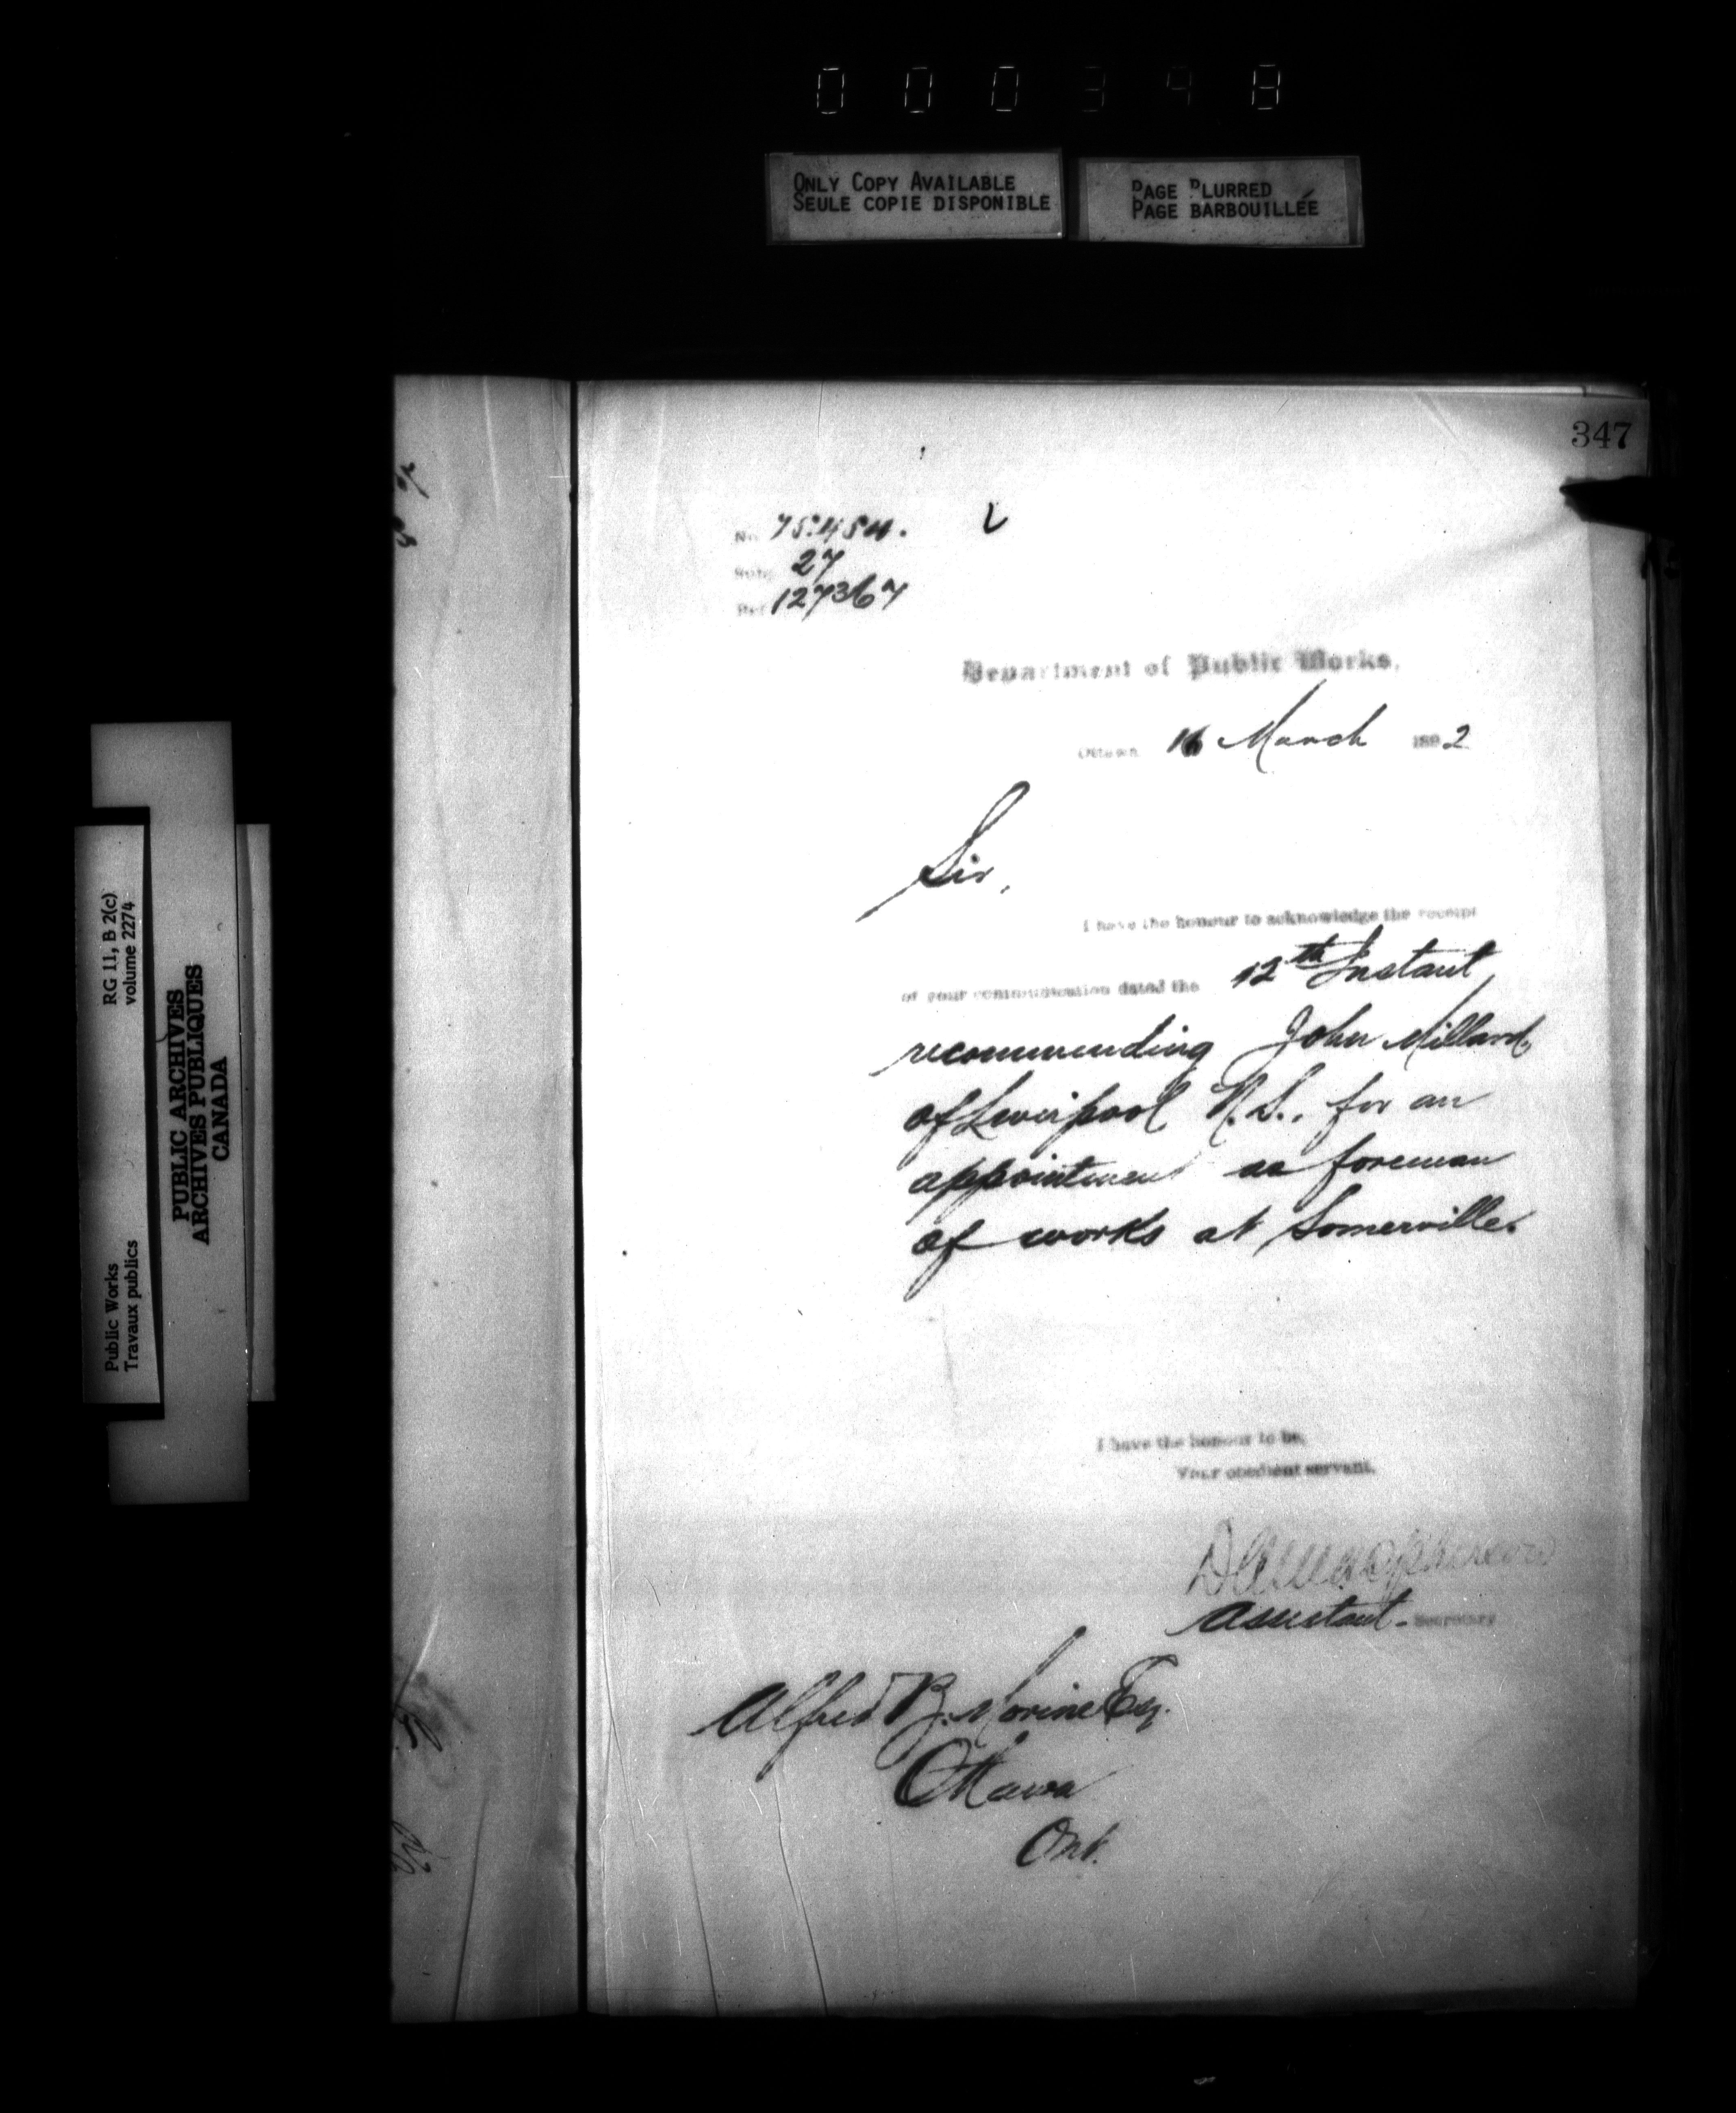 000348
ONLY COPY AVAILABLE
SEULE COPIE DISPONIBLE
PAGE BLURRED
PAGE BARBOUILLÉE
347
No. 75.454.
Subj. 27
Ref. 127367
Department of Public Works,
Ottawa 16 March 1892
Sir,
I have the honour to acknowledge the receipt
of your communication dated the 12th Instant
recommending John Millard,
of Liverpool N.S., for an
appointment as foreman
of works at Somerville.
I have the honour to be,
Your obedient servant,
Assistant-Secretary
Alfred B. Morine Esq.
Ottawa
Ont.
RG 11, B 2(c)
volume 2274
PUBLIC ARCHIVES
ARCHIVES PUBLIQUES
CANADA
Public Works
Travaux publics